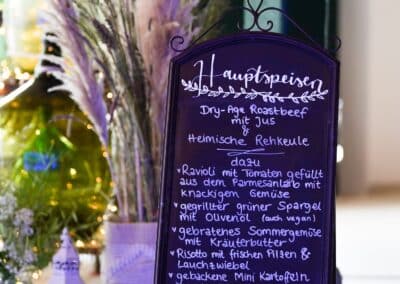 Hauptspeisen
Dry-Age Roastbeef
mit Jus
&
Heimische Rehkeule
dazu
♥ Ravioli mit Tomaten gefüllt
aus dem Parmesanlaib mit
knackigem Gemüse
♥ gegrillter grüner Spargel
mit Olivenöl (auch vegan)
♥ gebratenes Sommergemüse
mit Kräuterbutter
♥ Risotto mit frischen Pilzen &
Lauchzwiebel
♥ gebackene Mini Kartoffeln